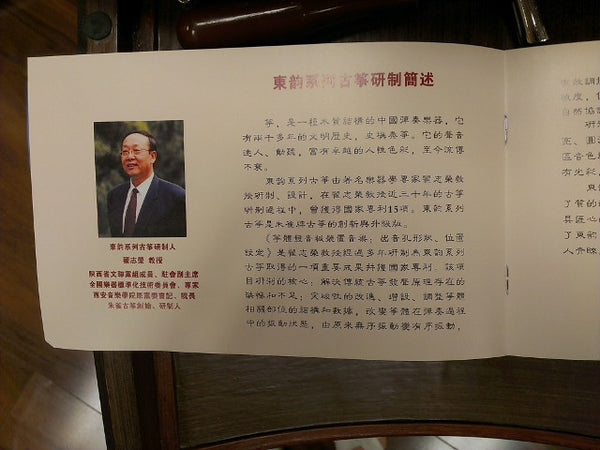 東韵系列古筝研制簡述
筝，是一種木質結構的中國彈奏樂器，它
有兩千多年的文明歷史，史稱秦筝。它的聲音
達人、動聽，富有卓越的人性色彩，至今流傳
不衰。
東韵系列古筝由著名樂器學專家翟志榮教
授研制、設計，在翟志榮教授近三十年的古筝
研制過程中，曾獲得國家專利15項。東韵系列
古筝是朱雀牌古筝的創新與升級版。
《筝體發音板裝置音梁；出音孔形狀、位置
設定》是翟志榮教授經過多年研制為東韵系列
古筝取得的一項重要成果并獲國家專利。該項
目研制的核心：解决傳統古筝發聲原理存在的
缺憾和不足；突破性的改進、增設、調整筝體
相關部位的結構和數據，改變筝體在彈奏過程
中的振動狀態，由原來無序振動變有序振動，
東韵系列古筝研制人
翟志榮 教授
陝西省文聯黨組成員、駐會副主席
全國樂器標準化技術委員會、專家
西安音樂學院原黨委書記、院長
朱雀古筝創始、研制人
自然協
寬、圓
區音色
有光彩，
了筝的
具匠心的
了東韵